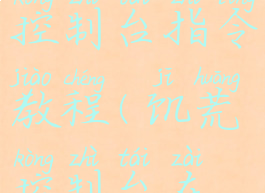 控制台指令
jiào chéng jī huāng
教程(饥荒
kòng zhì tái zài